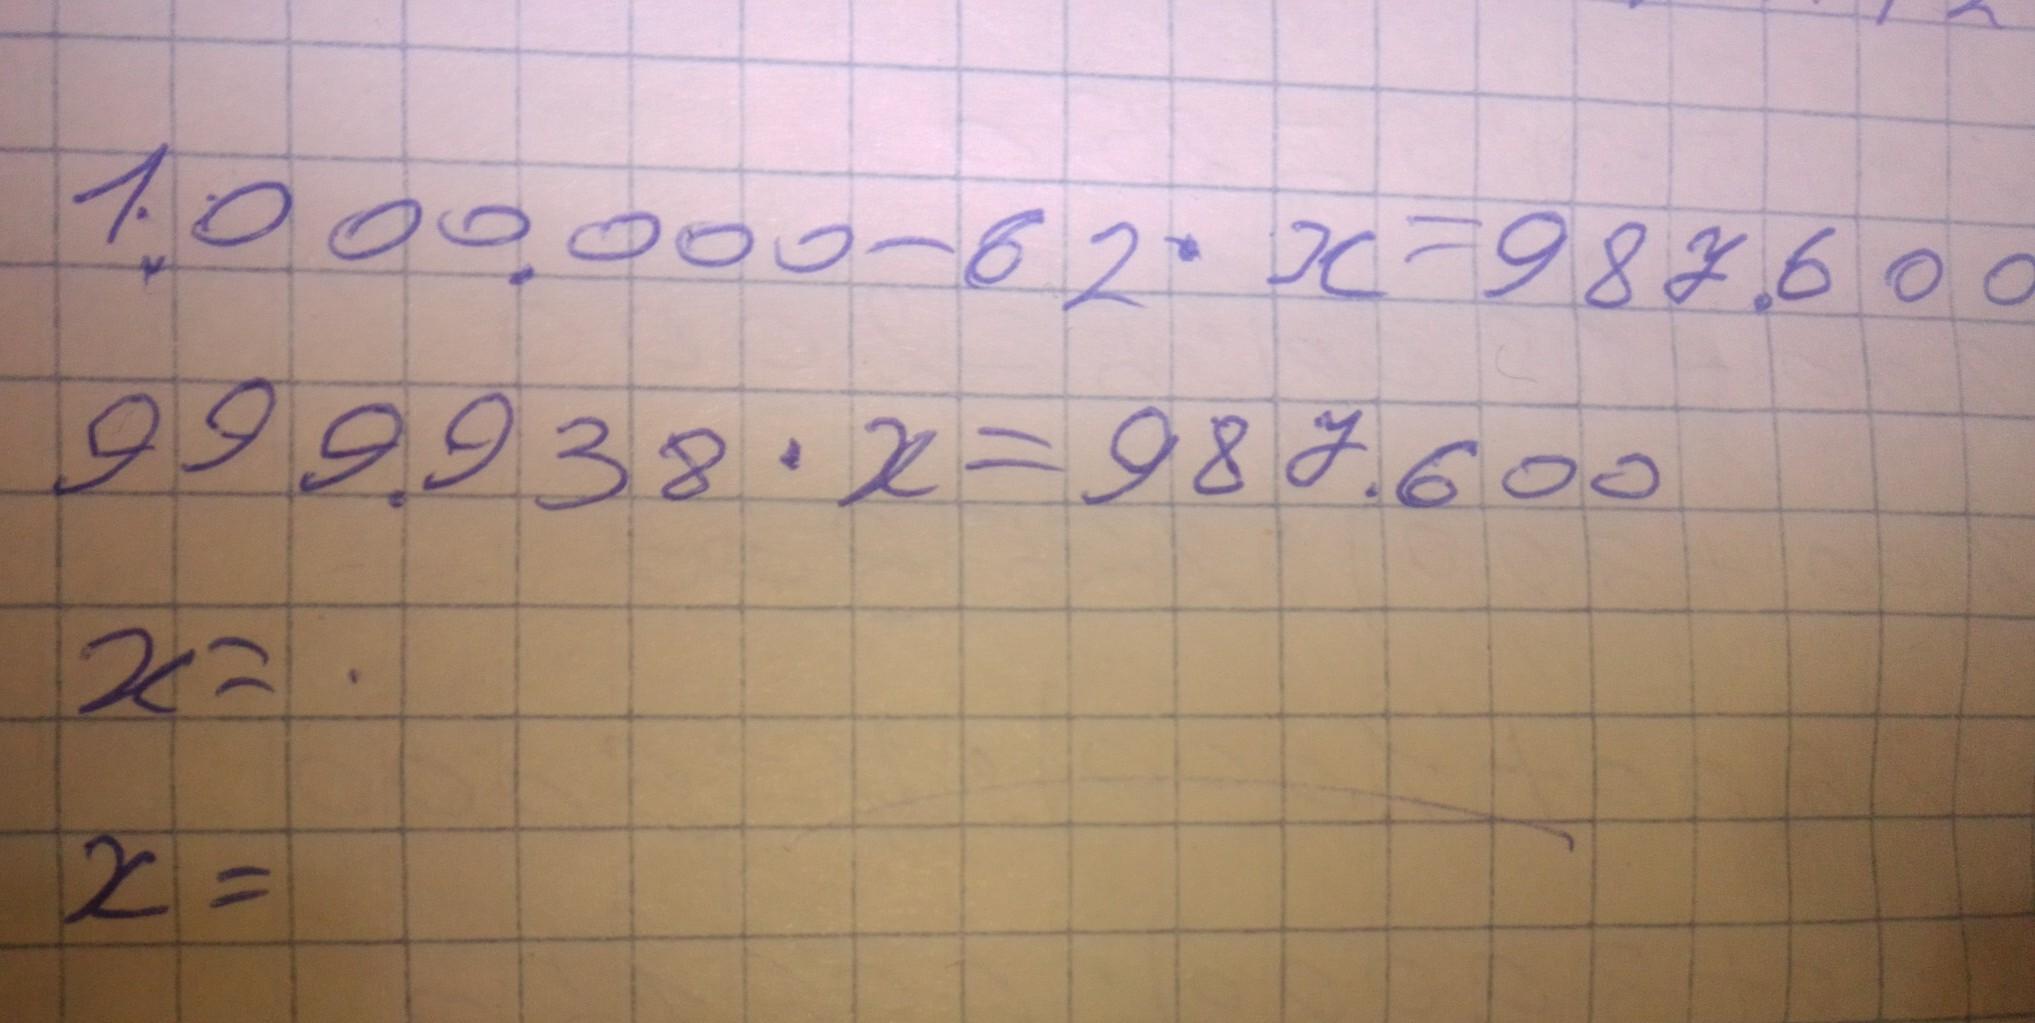 1.000.000-62·x=987.600
999.938·x=987.600
x=
x=